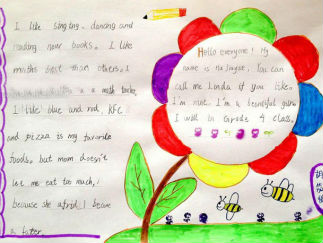 I like singing. dancing and
reading more books. I like
maths best than others. I
a math teacher,
I like blue and red, KFC
and pizza is my favorite
foods, but mom doesn't
let me eat too much,
because she afraid I become
a fater.
Hello everyone! My
name is Hu Jingyi. You can
call me Linda if you like.
I'm nine. I'm a beautiful girl.
I will in Grade 4 class,